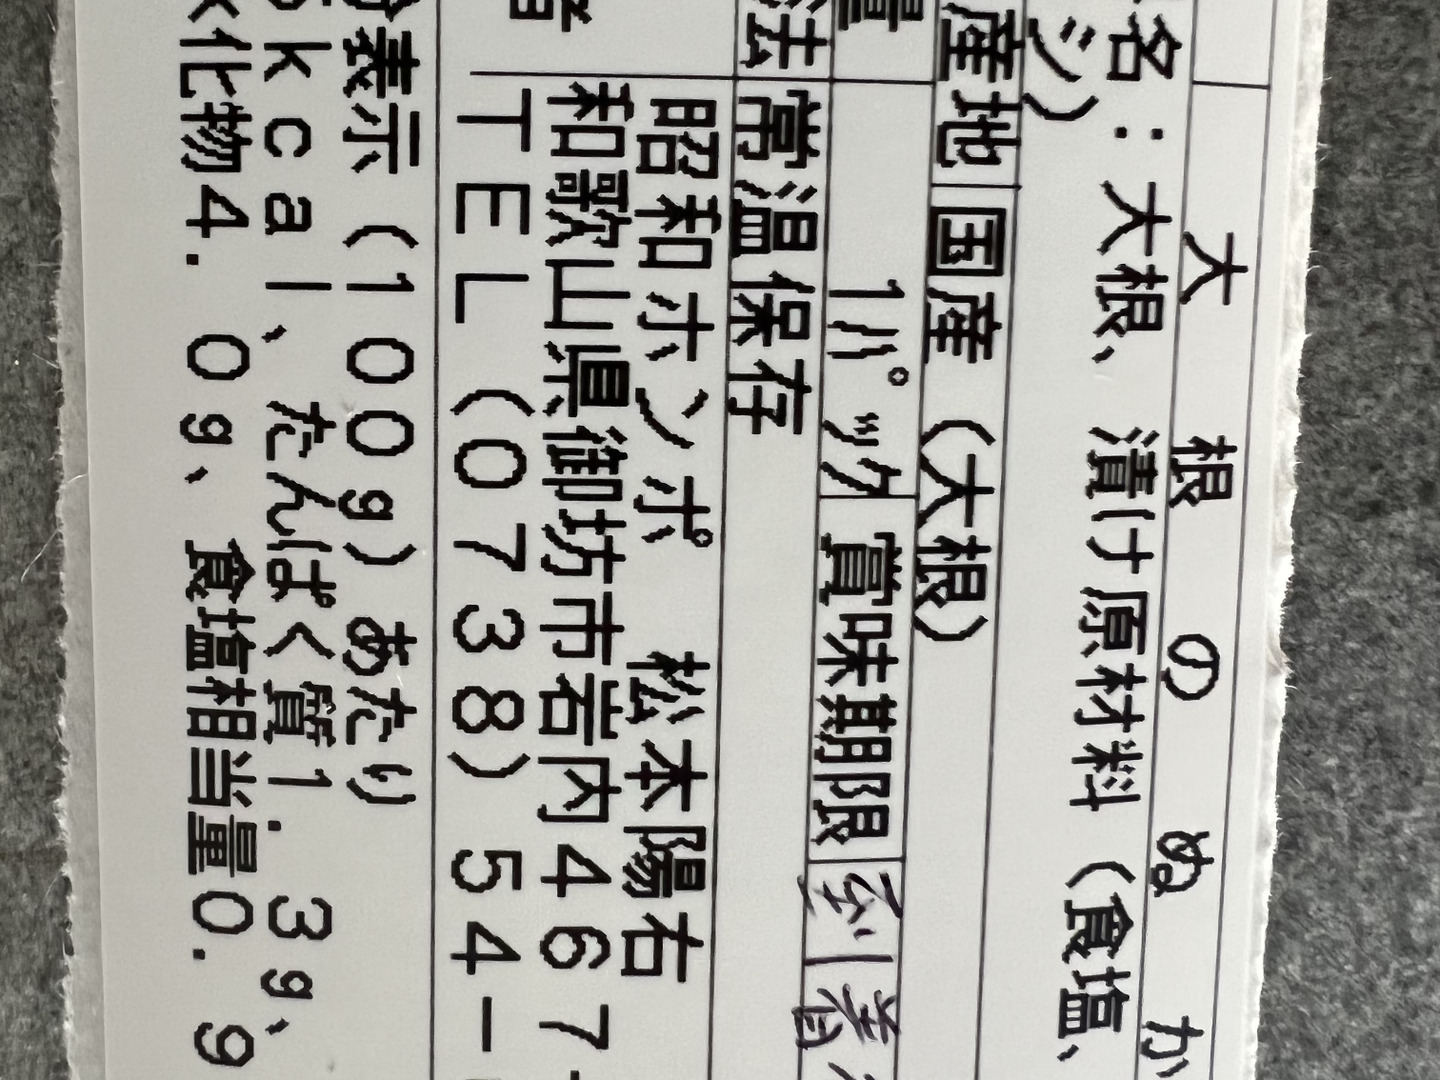 大根のぬか
名：大根、漬け原材料（食塩、
シ）
産地 国産（大根）
量 1パック 賞味期限 到着
法 常温保存
昭和ホンポ 松本陽右
和歌山県御坊市岩内467-
TEL（0738）54-
表示（100g）あたり
kcal、たんぱく質1.3g、
水化物4.0g、食塩相当量0.9